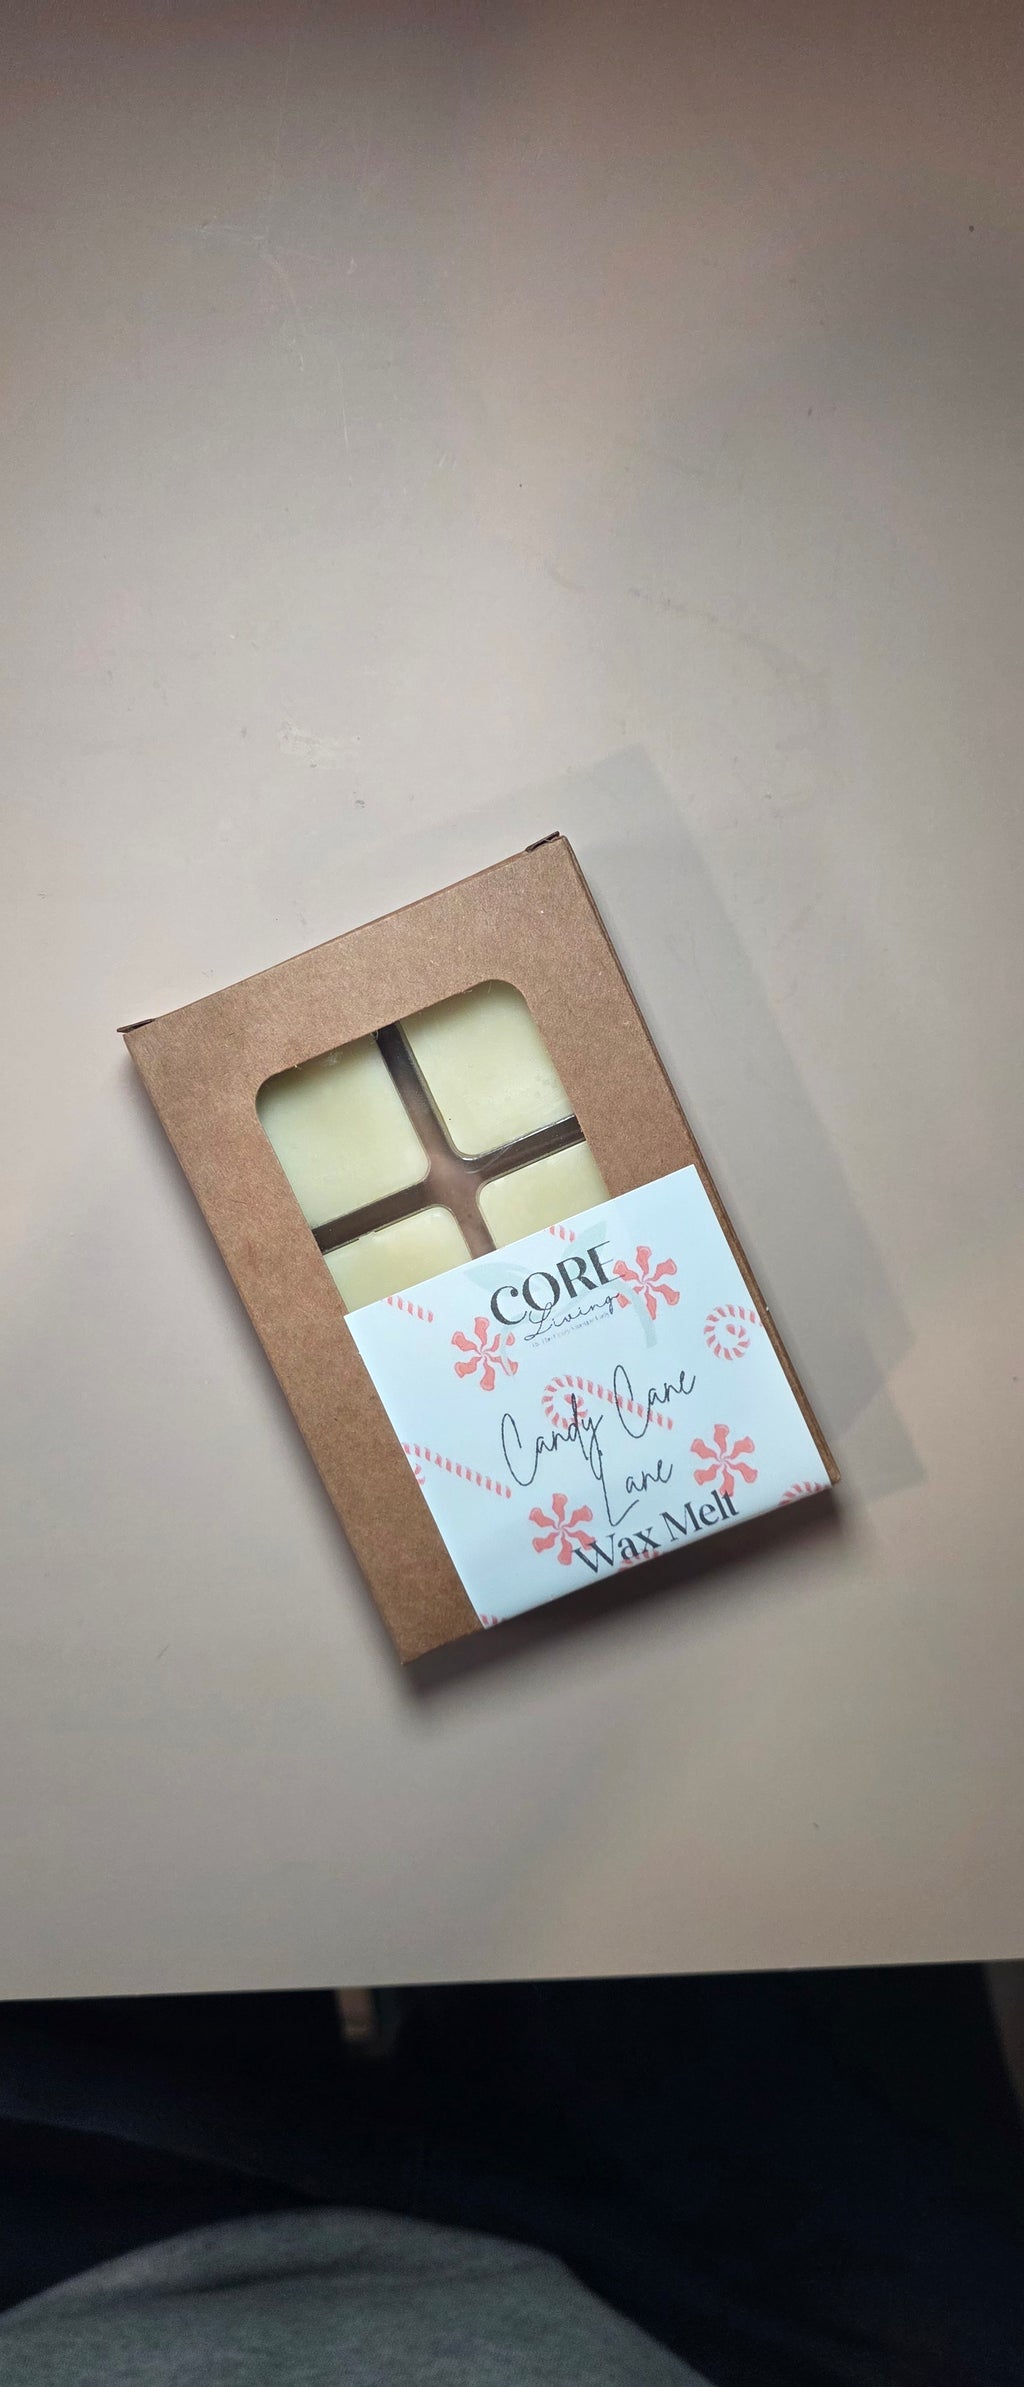 CORE
Living
Candy Cane
Lane
Wax Melt